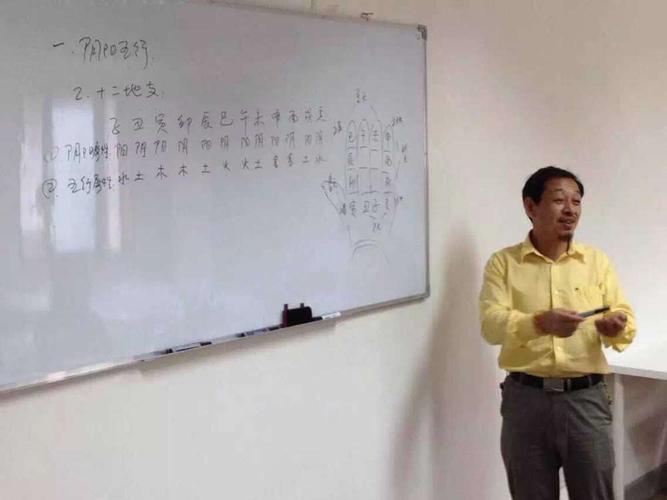 一. 阴阳五行.
2. 十二地支.
子 丑 寅 卯 辰 巳 午 未 申 酉 戌 亥
① 阴阳属性: 阳 阴 阳 阴 阳 阴 阳 阴 阳 阴 阳 阴
② 五行属性: 水 土 木 木 土 火 火 土 金 金 土 水
巳 午 未 申
辰 酉
卯 戌
寅 丑 子 亥